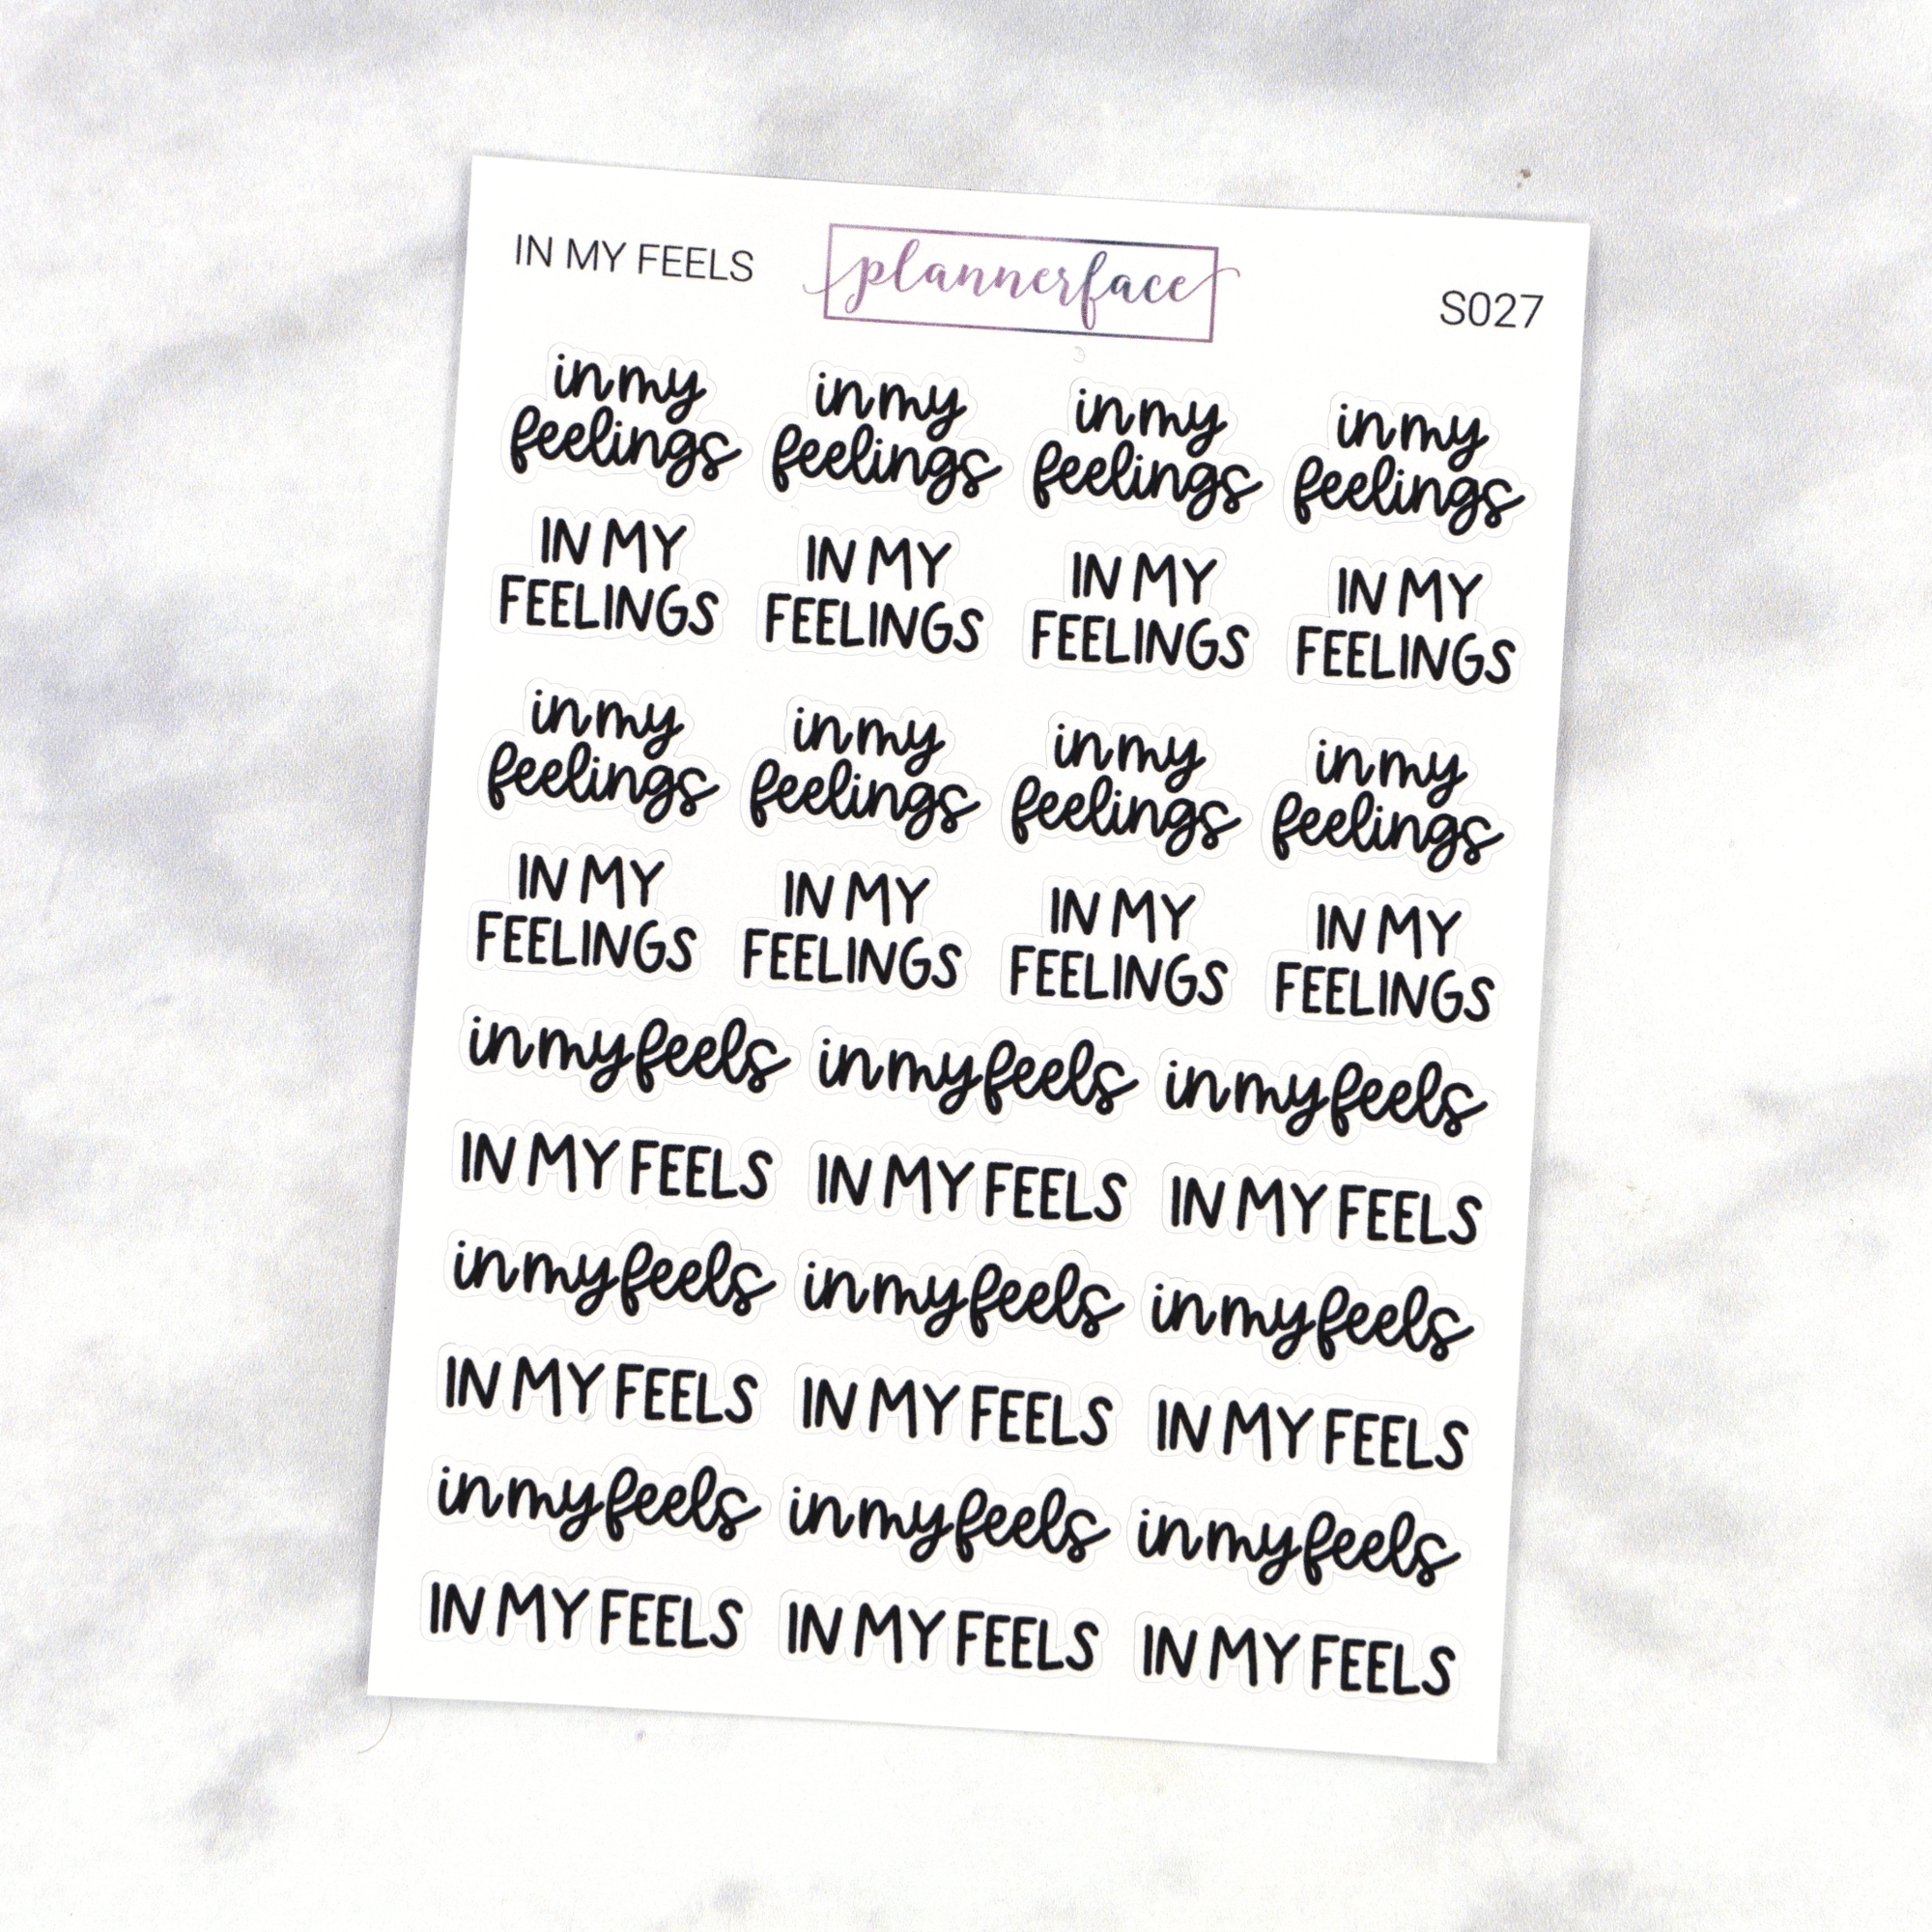 IN MY FEELS plannerface S027
in my in my in my in my
feelings feelings feelings feelings
IN MY IN MY IN MY IN MY
FEELINGS FEELINGS FEELINGS FEELINGS
in my in my in my in my
feelings feelings feelings feelings
IN MY IN MY IN MY IN MY
FEELINGS FEELINGS FEELINGS FEELINGS
in my feels in my feels in my feels
IN MY FEELS IN MY FEELS IN MY FEELS
in my feels in my feels in my feels
IN MY FEELS IN MY FEELS IN MY FEELS
in my feels in my feels in my feels
IN MY FEELS IN MY FEELS IN MY FEELS